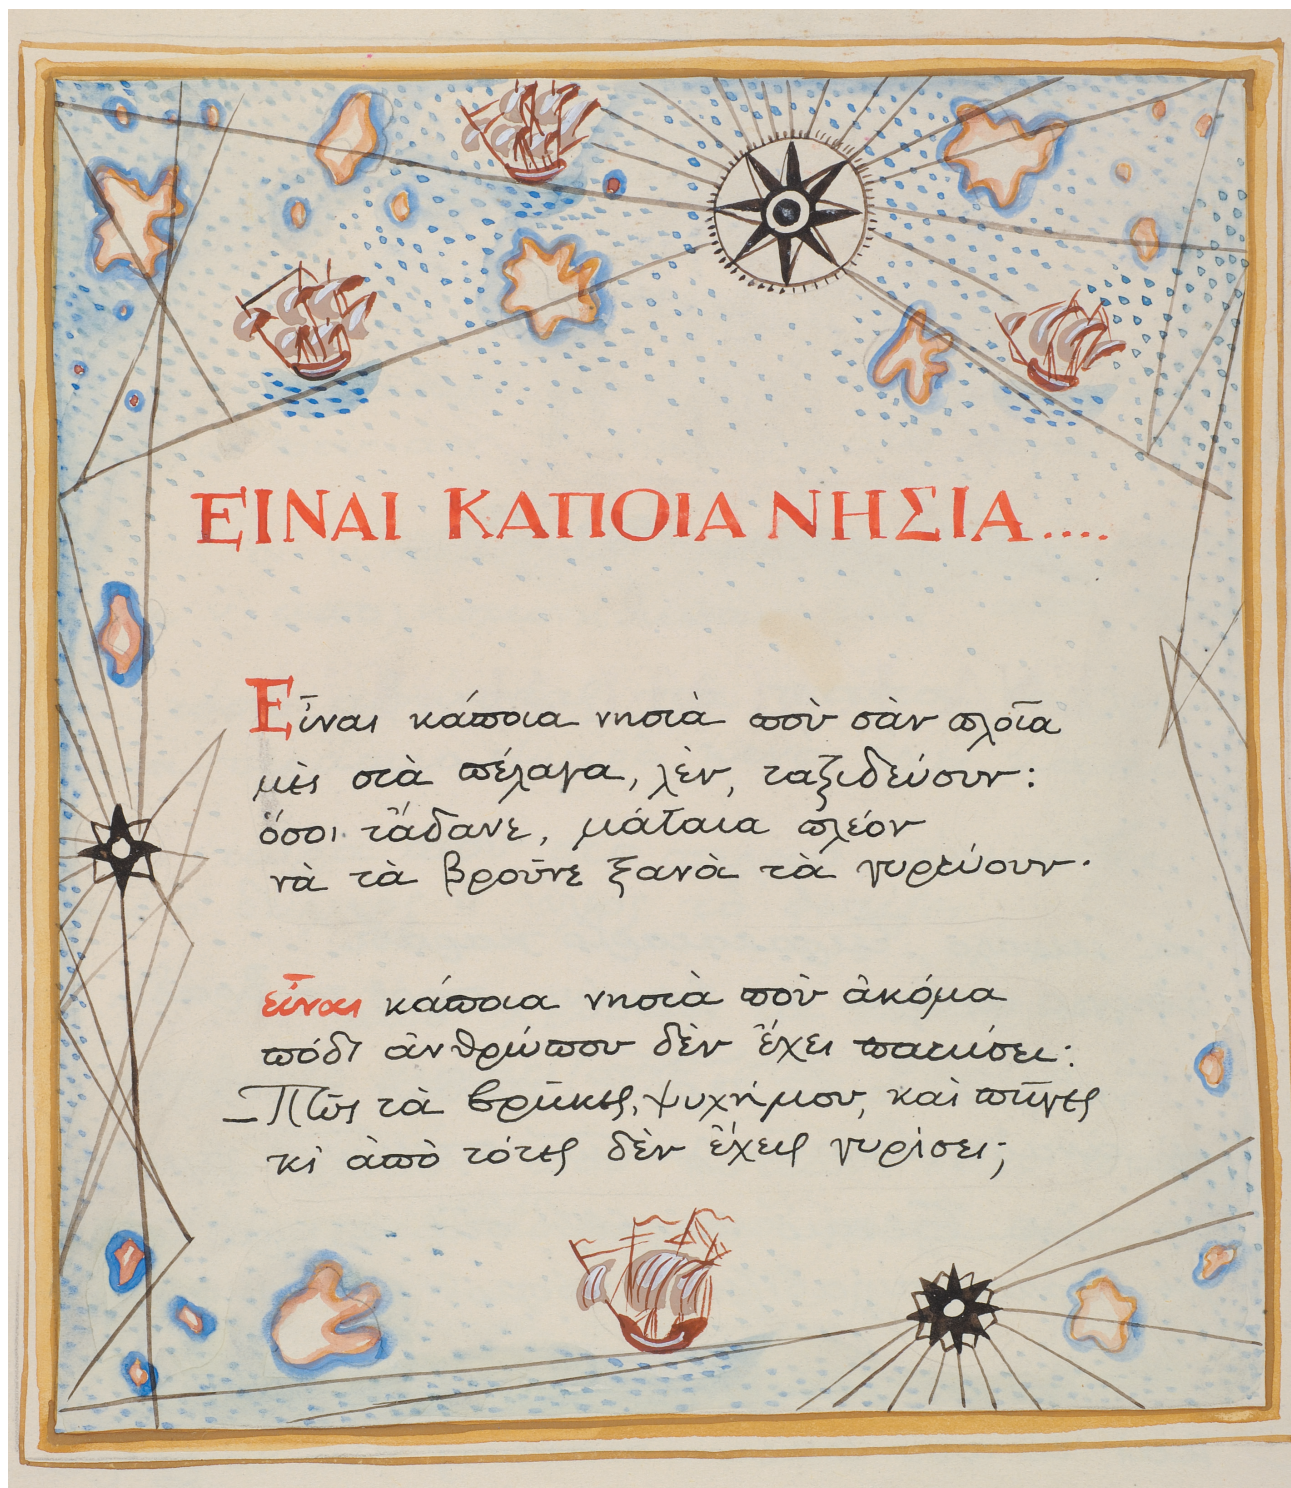 ΕΙΝΑΙ ΚΑΠΟΙΑ ΝΗΣΙΑ....
Εἶναι κάποια νησιὰ ποὺ σὰν πλοῖα
μὲς στὰ πέλαγα, λὲν, ταξιδεύουν:
ὅσοι τἄδανε, μάταια πλέον
νὰ τὰ βροῦνε ξανὰ τὰ γυρεύουν.
εἶναι κάποια νησιὰ ποὺ ἀκόμα
πόδι ἀνθρώπου δὲν ἔχει πατήσει:
–Πῶς τὰ βρῆκες, ψυχή μου, καὶ πῆγες
κι ἀπὸ τότες δὲν ἔχεις γυρίσει;